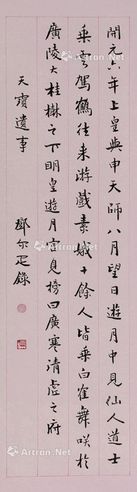 開元六年上皇與申天師八月望日遊月中見仙人道士
乘雲駕鶴往來游戲素娥十餘人皆乘白鸞舞咲於
廣陵大桂樹之下明皇遊月宮見榜曰廣寒清虛之府
天寶遺事
鄧尔疋錄